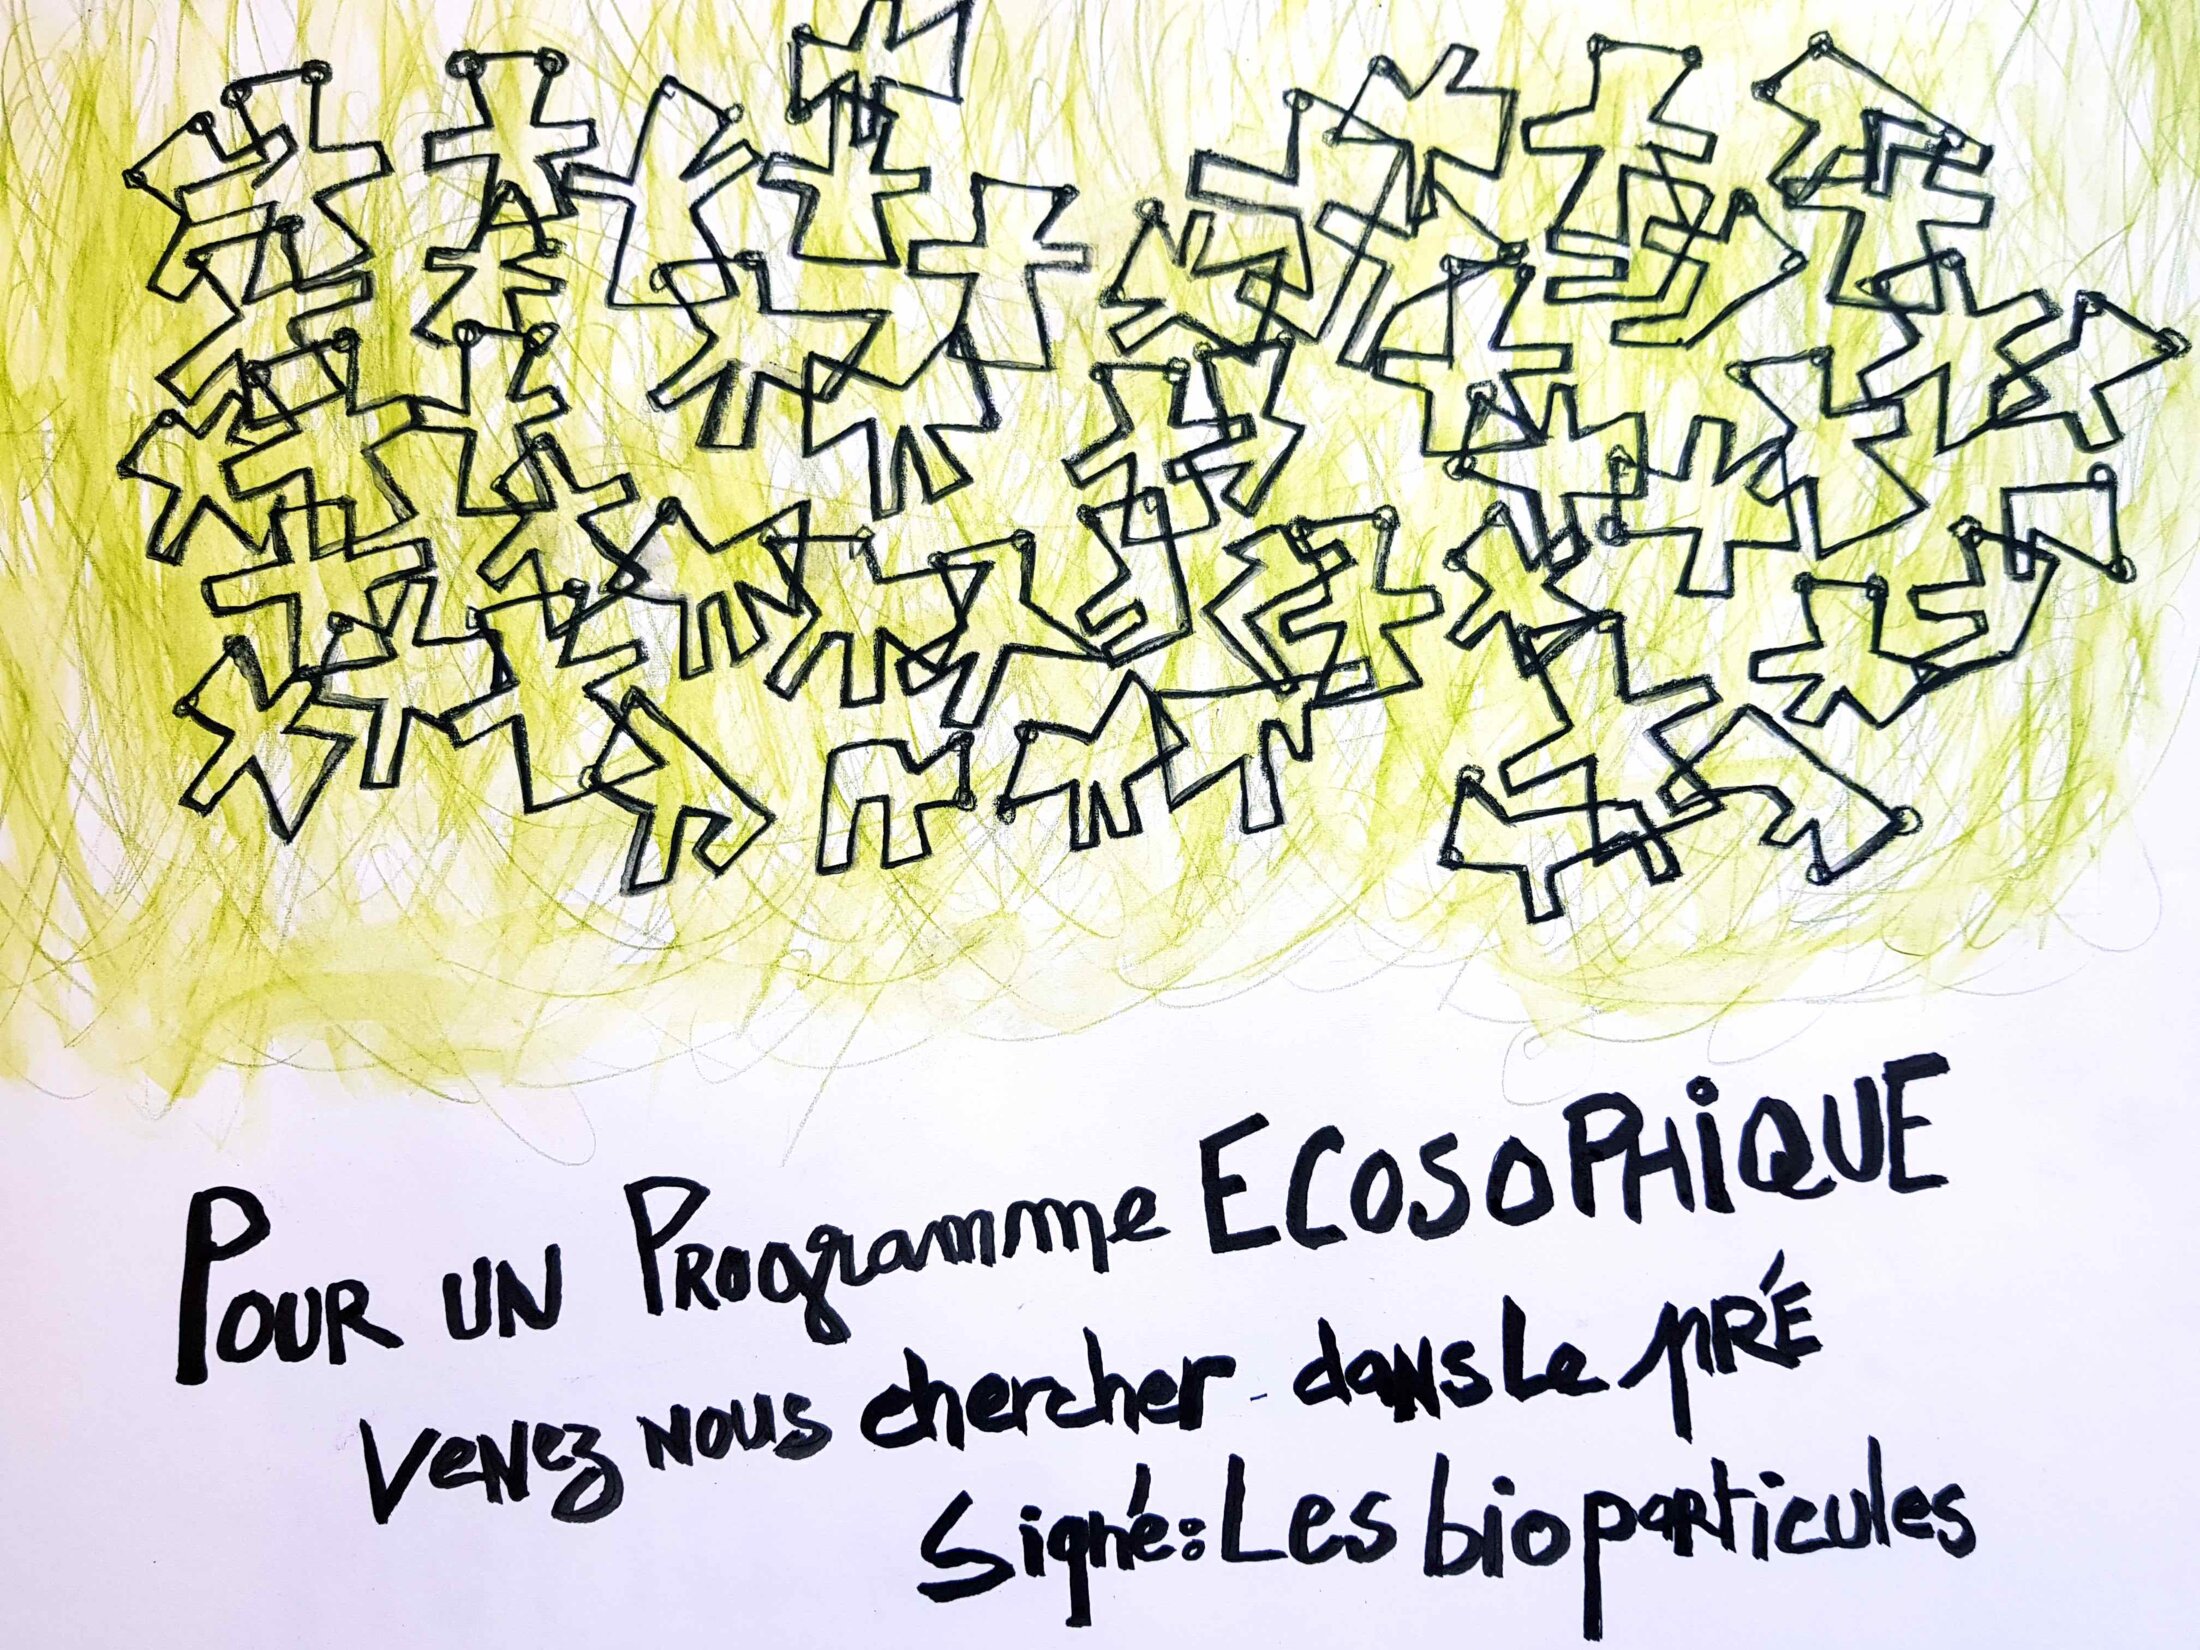 POUR UN PROgramme ECOSOPHiQUE
VeNez NOUS chercher dans Le pRÉ
Signé: Les bioparticules